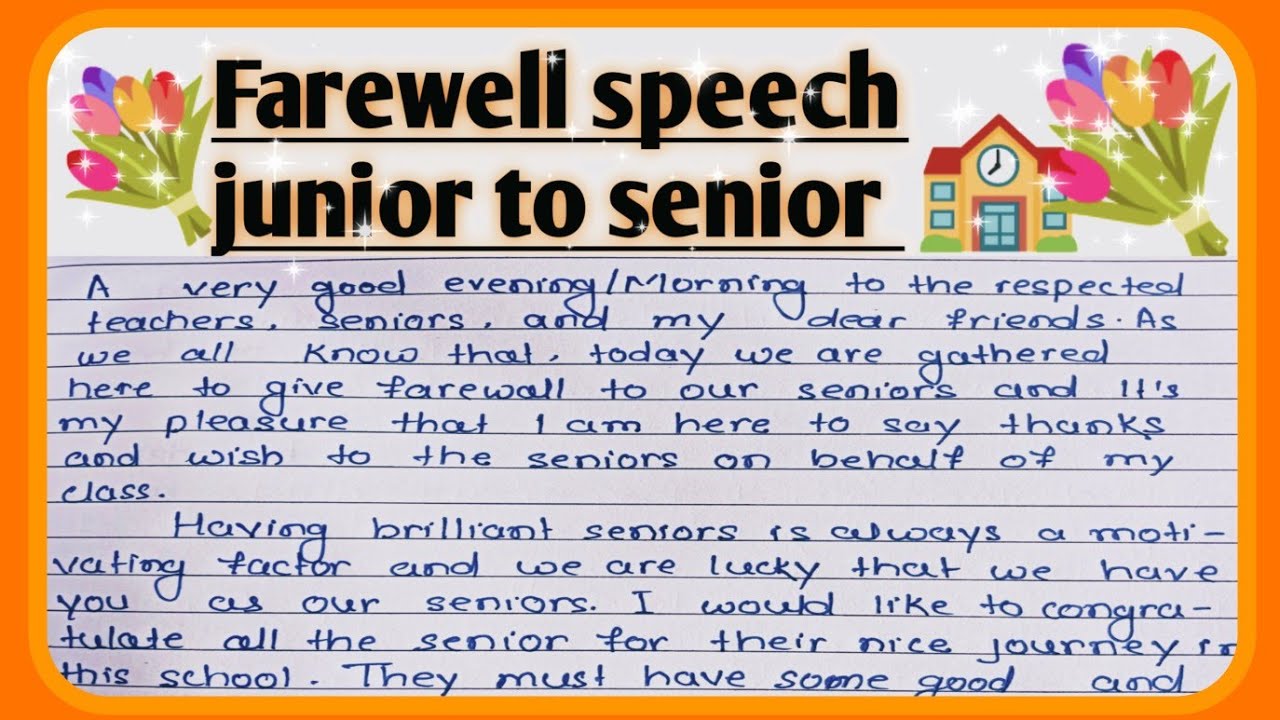 Farewell speech
junior to senior
A very good evening/Morning to the respected
teachers, seniors, and my dear friends. As
we all know that, today we are gathered
here to give farewall to our seniors and It's
my pleasure that I am here to say thanks
and wish to the seniors on behalf of my
class.
Having brilliant seniors is always a moti-
vating factor and we are lucky that we have
you as our seniors. I would like to congra-
tulate all the senior for their nice journey in
this school. They must have some good and